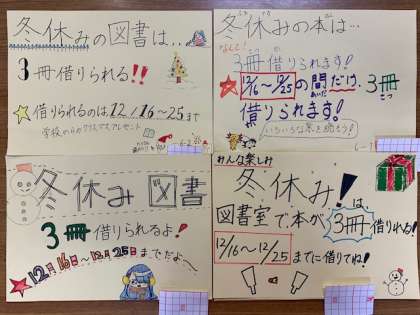 冬休みの図書は..
3冊借りられる!!
☆借りられるのは12/16〜25まで
学校からのクリスマスプレゼント
冬休みの本は…
なんと!
3冊借りられます!
★12/16〜12/25の間だけ、3冊
借りられます!
いろいろな本を読もう!
冬休み図書
3冊借りられるよ!
★12月16日〜12月25日までだよ〜
みんな楽しみ
冬休み!は
図書室で、本が3冊借りれる!
12/16〜12/25までに借りてね!